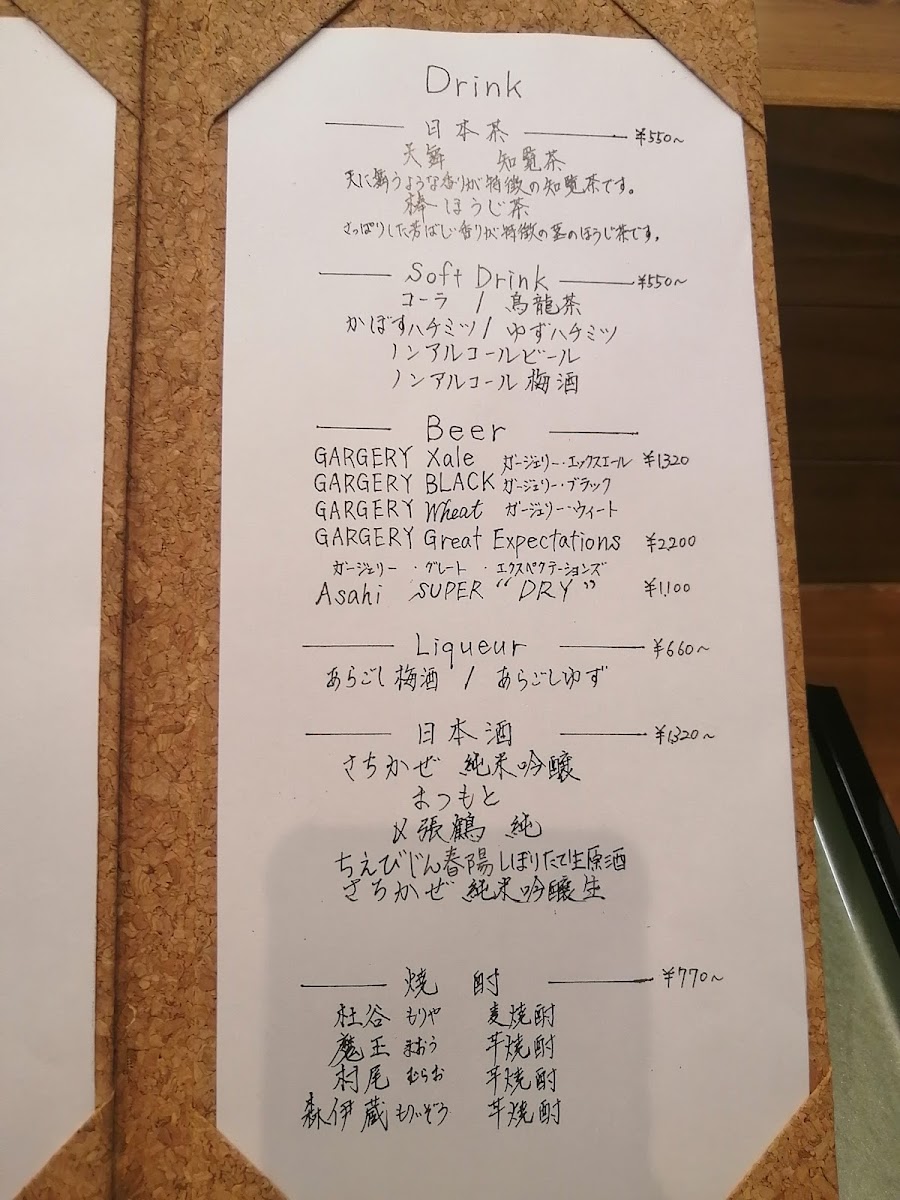 Drink
日本茶 ¥550~
天舞 知覧茶
天に舞うような香りが特徴の知覧茶です。
棒ほうじ茶
さっぱりした芳ばしい香りが特徴の茎のほうじ茶です。
Soft Drink ¥550~
コーラ / 烏龍茶
かぼすハチミツ / ゆずハチミツ
ノンアルコールビール
ノンアルコール梅酒
Beer
GARGERY Xale ガージェリー・エックスエール ¥1320
GARGERY BLACK ガージェリー・ブラック
GARGERY Wheat ガージェリー・ウィート
GARGERY Great Expectations ¥2,200
ガージェリー・グレート・エクスペクテーションズ
Asahi SUPER "DRY" ¥1,100
Liqueur ¥660~
あらごし梅酒 / あらごしゆず
日本酒 ¥1320~
さちかぜ 純米吟醸
まつもと
〆張鶴 純
ちえびじん春陽しぼりたて生原酒
さちかぜ 純米吟醸生
焼酎 ¥770~
杜谷 もりや 麦焼酎
魔王 まおう 芋焼酎
村尾 むらお 芋焼酎
森伊蔵 もりいぞう 芋焼酎